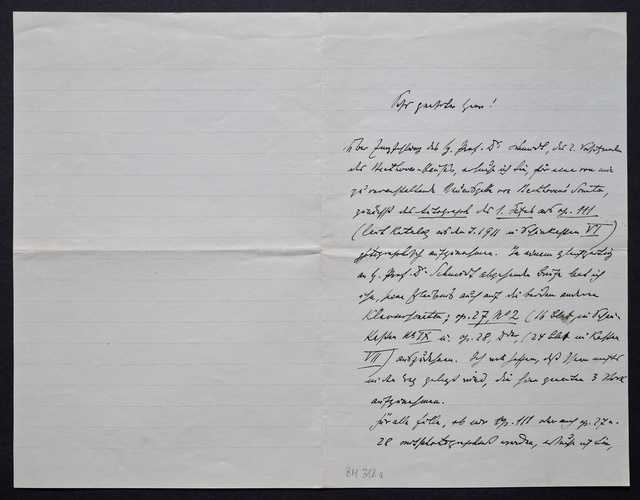 Sehr geehrter Herr!
Über Empfehlung des H. Prof. Dr. Schmidt, des 2. Vorsitzenden
des Beethoven-Hauses, ersuche ich Sie, für eine von mir
zu veranstaltende Neuausgabe von Beethovens Sonaten,
zunächst das Autograph des 1. Satzes aus op. 111
(laut Katalog aus dem J. 1911 in Schaukasten VI)
photographisch aufzunehmen. In einem gleichzeitig
an H. Prof. Dr. Schmidt abgehenden Briefe bat ich
ihn, seine Erlaubnis auch auf die beiden anderen
Klaviersonaten: op. 27, No 2 (16 Blatt in Schau-
kasten No IX u. op. 28, Ddur, (24 Blatt in Kasten
VII) auszudehnen. Ich will hoffen, daß Ihnen nichts
in den Weg gelegt wird, die hier genannten 3 Werke
aufzunehmen.
Für alle Fälle, ob nur op. 111 oder auch op. 27 u.
28 photographiert werden, ersuche ich Sie,
BH 318a